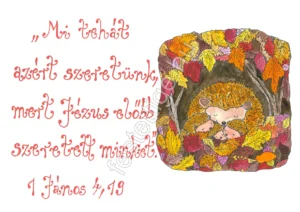 „Mi tehát
azért szeretünk,
mert Jézus előbb
szeretett minket.
1 János 4,19